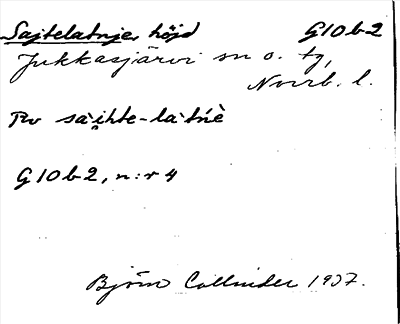 Sajtelatnje, höjd G10b2
Jukkasjärvi sn o. tg,
Norrb. l.
Rv sài̯hte-la·tńè
G10b2, n:r 4
Björn Collinder 1937.